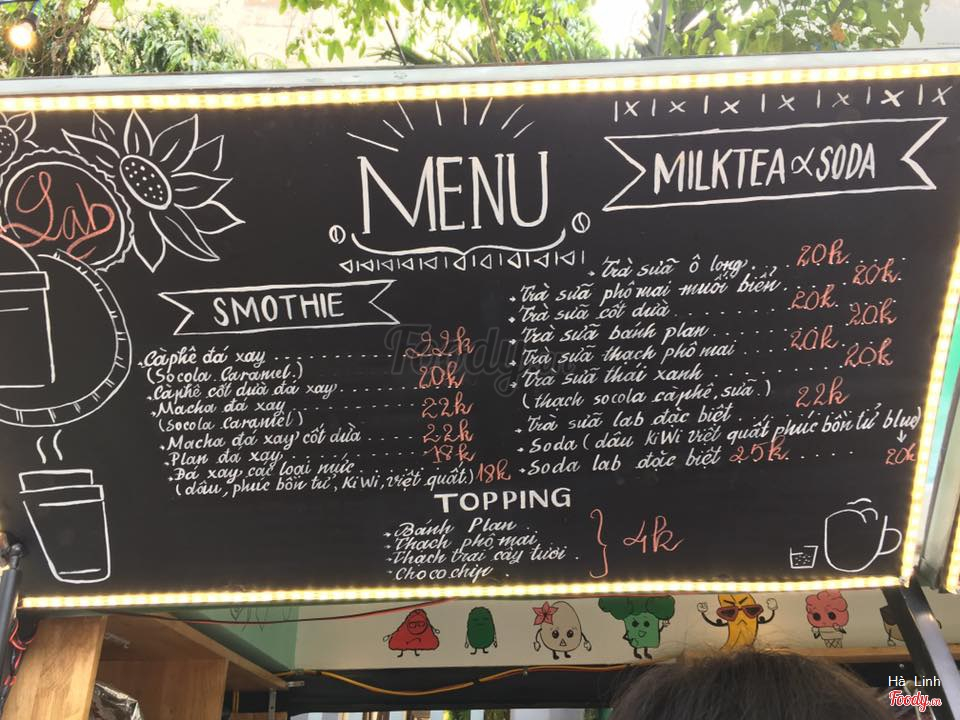 Lab
MENU
MILKTEA & SODA
SMOTHIE
Cà phê đá xay ........ 22k
(Socola Caramel.)
Cà phê cốt dừa đá xay ...... 20k
Macha đá xay ........ 22k
(Socola caramel)
Macha đá xay cốt dừa ...... 22k
Plan đá xay ........ 18k
Đá xay các loại mức ........
(dâu, phúc bồn tử, KiWi, việt quất) 18k
Trà sữa ô long .... 20k
Trà sữa phô mai muối biển ...... 20k
Trà sữa cốt dừa ...... 20k
Trà sữa bánh plan ...... 20k
Trà sữa thạch phô mai .... 20k
Trà sữa thái xanh ...... 20k
(thạch socola cà phê, sữa.)
Trà sữa lab đặc biệt .... 22k
Soda (dâu KiWi việt quất phúc bồn tử blue)
Soda lab đặc biệt 25k ...... 20k
TOPPING
Bánh Plan
Thạch phô mai
Thạch trái cây tươi
Chocochip
4k
Foody.vn
Hà Linh
Foody.vn